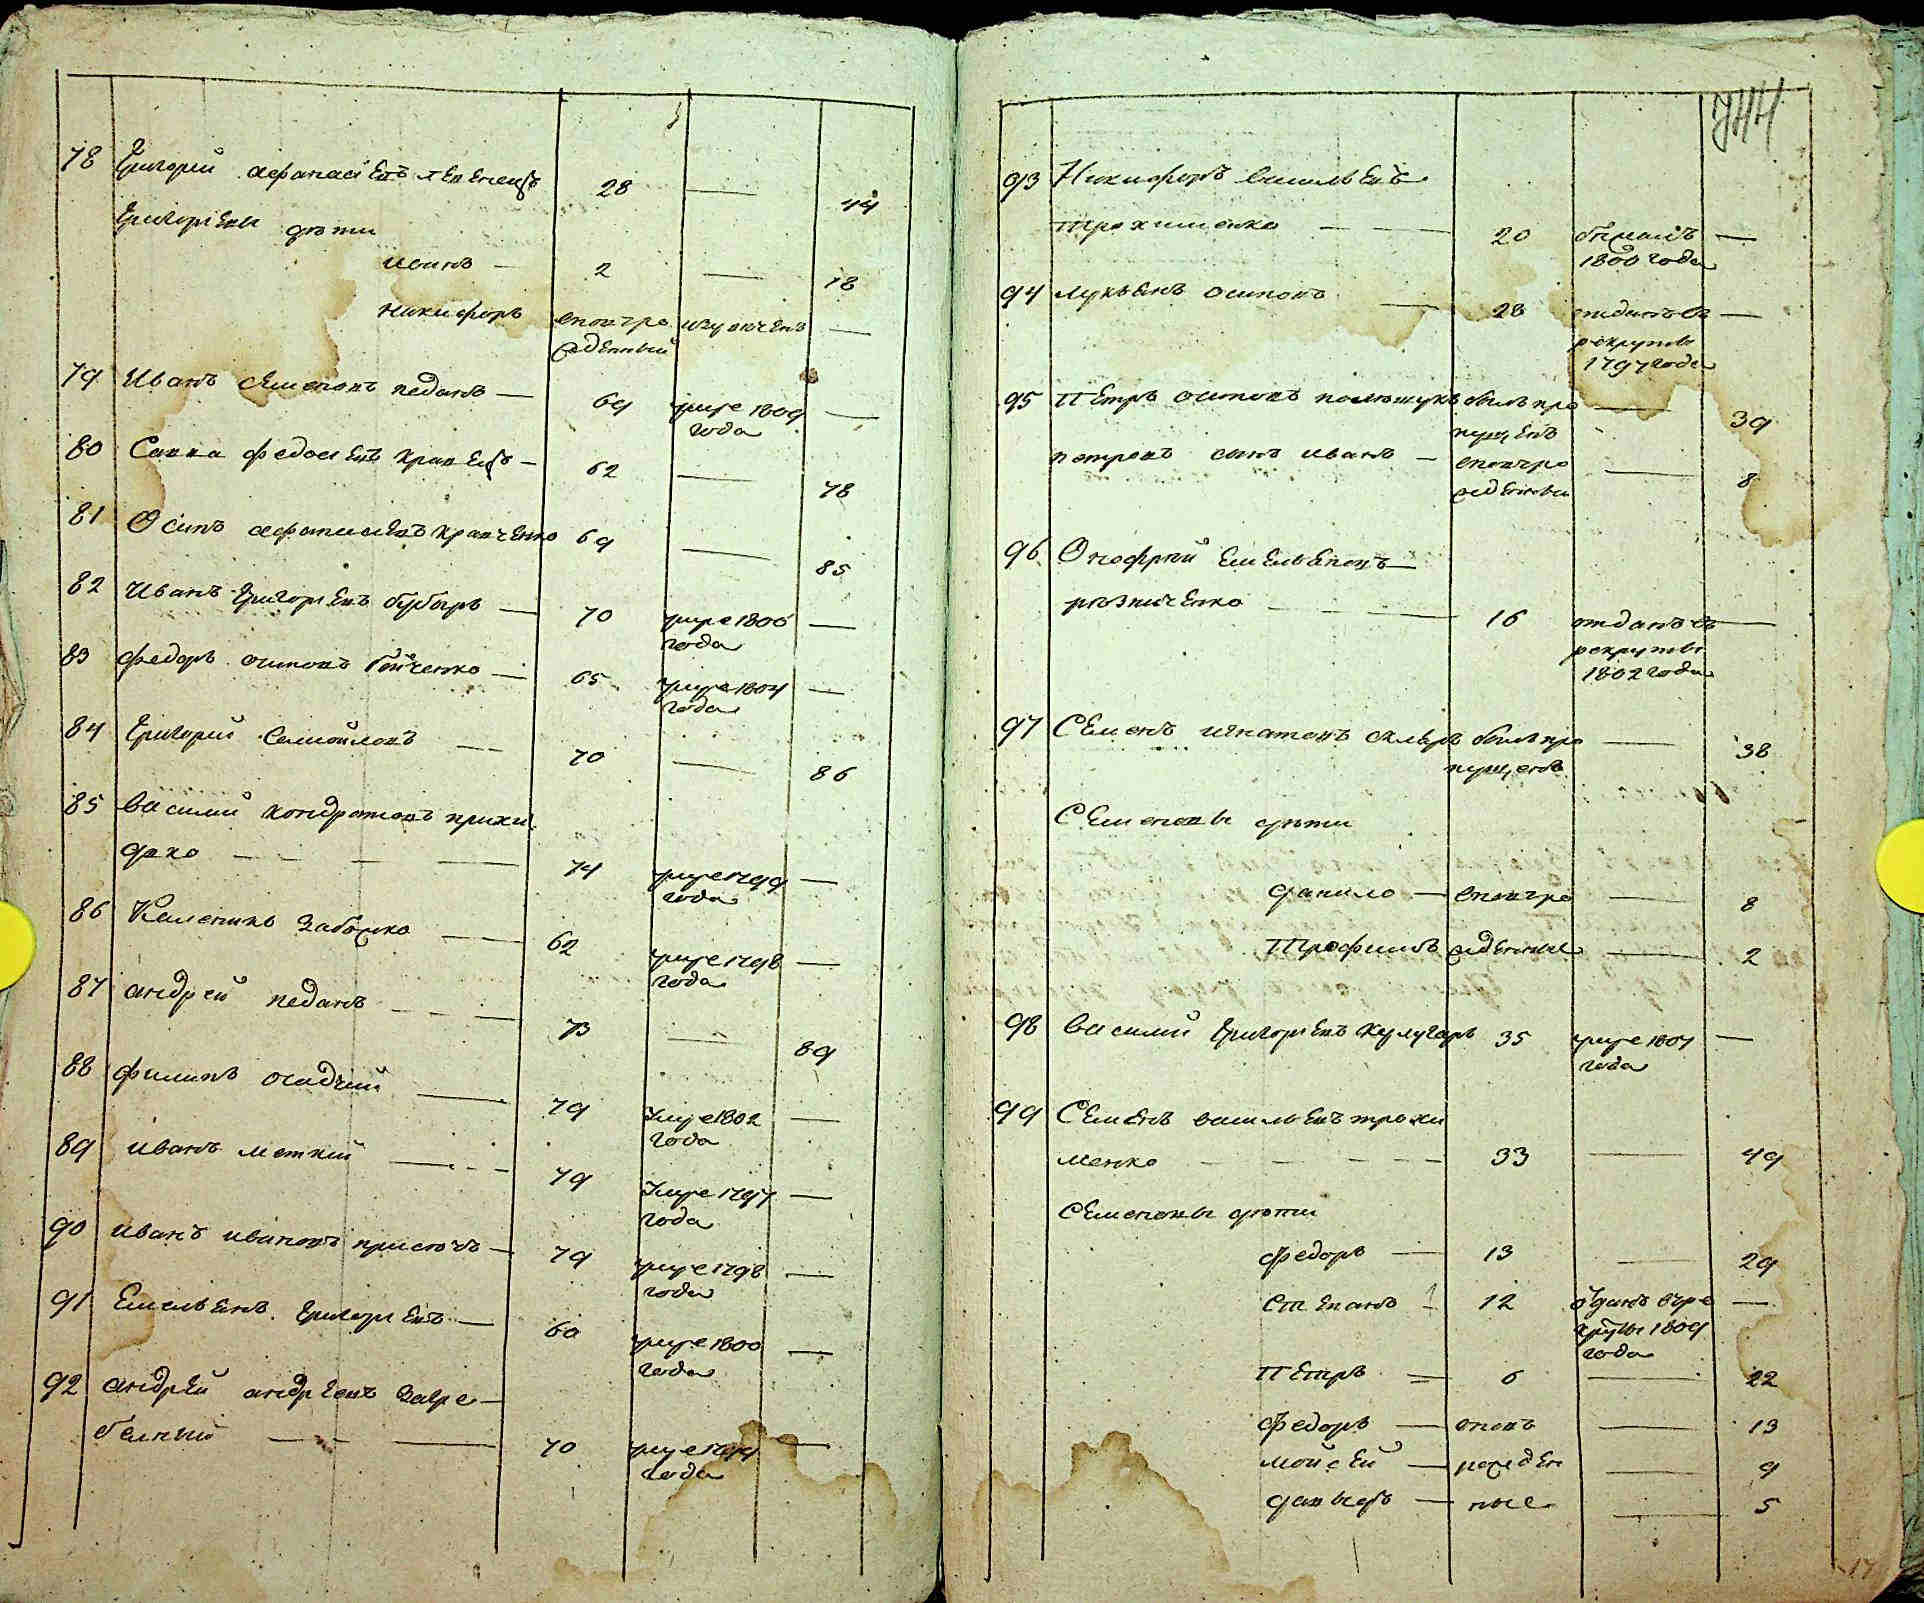 78 Григорей афанасіевъ 28 — 44
Григорієвы дѣти
иванъ — 2 — 18
никифоръ
вновъ ро
жденный —
79 Иванъ Семеновъ педанъ — 69 умре 1809 —
года
80 Савва федосіевъ кравецъ — 62 — 78
81 Осипъ афанасіевъ кравченко 69 — 85
82 Иванъ Григорієвъ бубыръ — 70 умре 1806 —
года
83 федоръ осиповъ бойченко — 65 умре 1804 —
года
84 Григорий Самойловъ — 70 — 86
85 василий кондратовъ прихи
дко — 74 умре 1799 —
года
86 Каленикъ 62 умре 1798 —
года
87 андрей педанъ — 73 — 89
88 филипъ осадчий — 79 умре 1802 —
года
89 иванъ меткий — 79 умре 1797 —
года
90 иванъ ивановъ — 79 умре 1798 —
года
91 Емельянъ Григорієвъ — 60 умре 1800 —
года
92 андрей андрієвъ загре
белный — 70 умре —
года
744
93 Никифоръ васильевъ
трохименко — 20 бѣжалъ —
1800 года
94 лукьянъ осиповъ — 28 отданъ въ —
рекруты
1797 года
95 Петръ осиповъ полѣщукъ былъ про — 39
пущенъ
петровъ сынъ иванъ — вновъ ро — 8
жденны
96 Онофрий Емельяновъ
рѣзниченко — 16 отданъ въ —
рекруты
1802 года
97 Семенъ игнатовъ скляръ былъ про — 38
пущенъ
Семеновы дѣти
данило — вновъ ро — 8
Трофимъ жденные — 2
98 василий Григорієвъ 35 умре 1807 —
года
99 Семенъ васильевъ трохи
менко — 33 — 49
Семеновы дѣти
федоръ — 13 — 29
Степанъ — 12 оданъ въ ре —
круты 1809
года
Петръ = 6 — 22
Федоръ — вновъ — 13
мойсей — рожден — 9
давыдъ — ные — 5
17